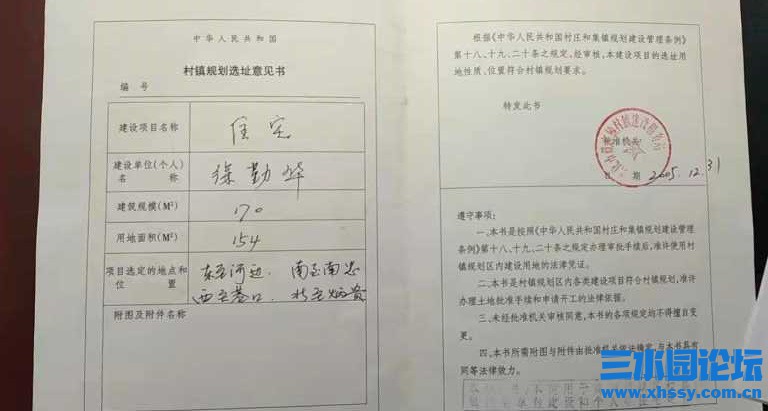 中华人民共和国
村镇规划选址意见书
编 号
建设项目名称 住宅
建设单位(个人)
名 称 徐勤华
建筑规模(M²) 170
用地面积(M²) 154
项目选定的地点和
位 置
东至河边. 南至南忠
西至巷口. 北至炳贵
附图及附件名称
根据《中华人民共和国村庄和集镇规划建设管理条例》
第十八、十九、二十条之规定,经审核,本建设项目的选址用
地性质、位置符合村镇规划要求。
特发此书
批准机关
日 期 2005.12.31
遵守事项:
一、本书是按照《中华人民共和国村庄和集镇规划建设管理
条例》第十八、十九、二十条之规定办理审批手续后,准许使用村
镇规划区内建设用地的法律凭证。
二、本书是村镇规划区内各类建设项目符合村镇规划,准许
办理土地批准手续和申请开工的法律依据。
三、未经批准机关审核同意,本书的各项规定均不得擅自变
更。
四、本书所需附图与附件由批准机关依法确定,与本书具有
同等法律效力。
三水园论坛
www.xhssy.com